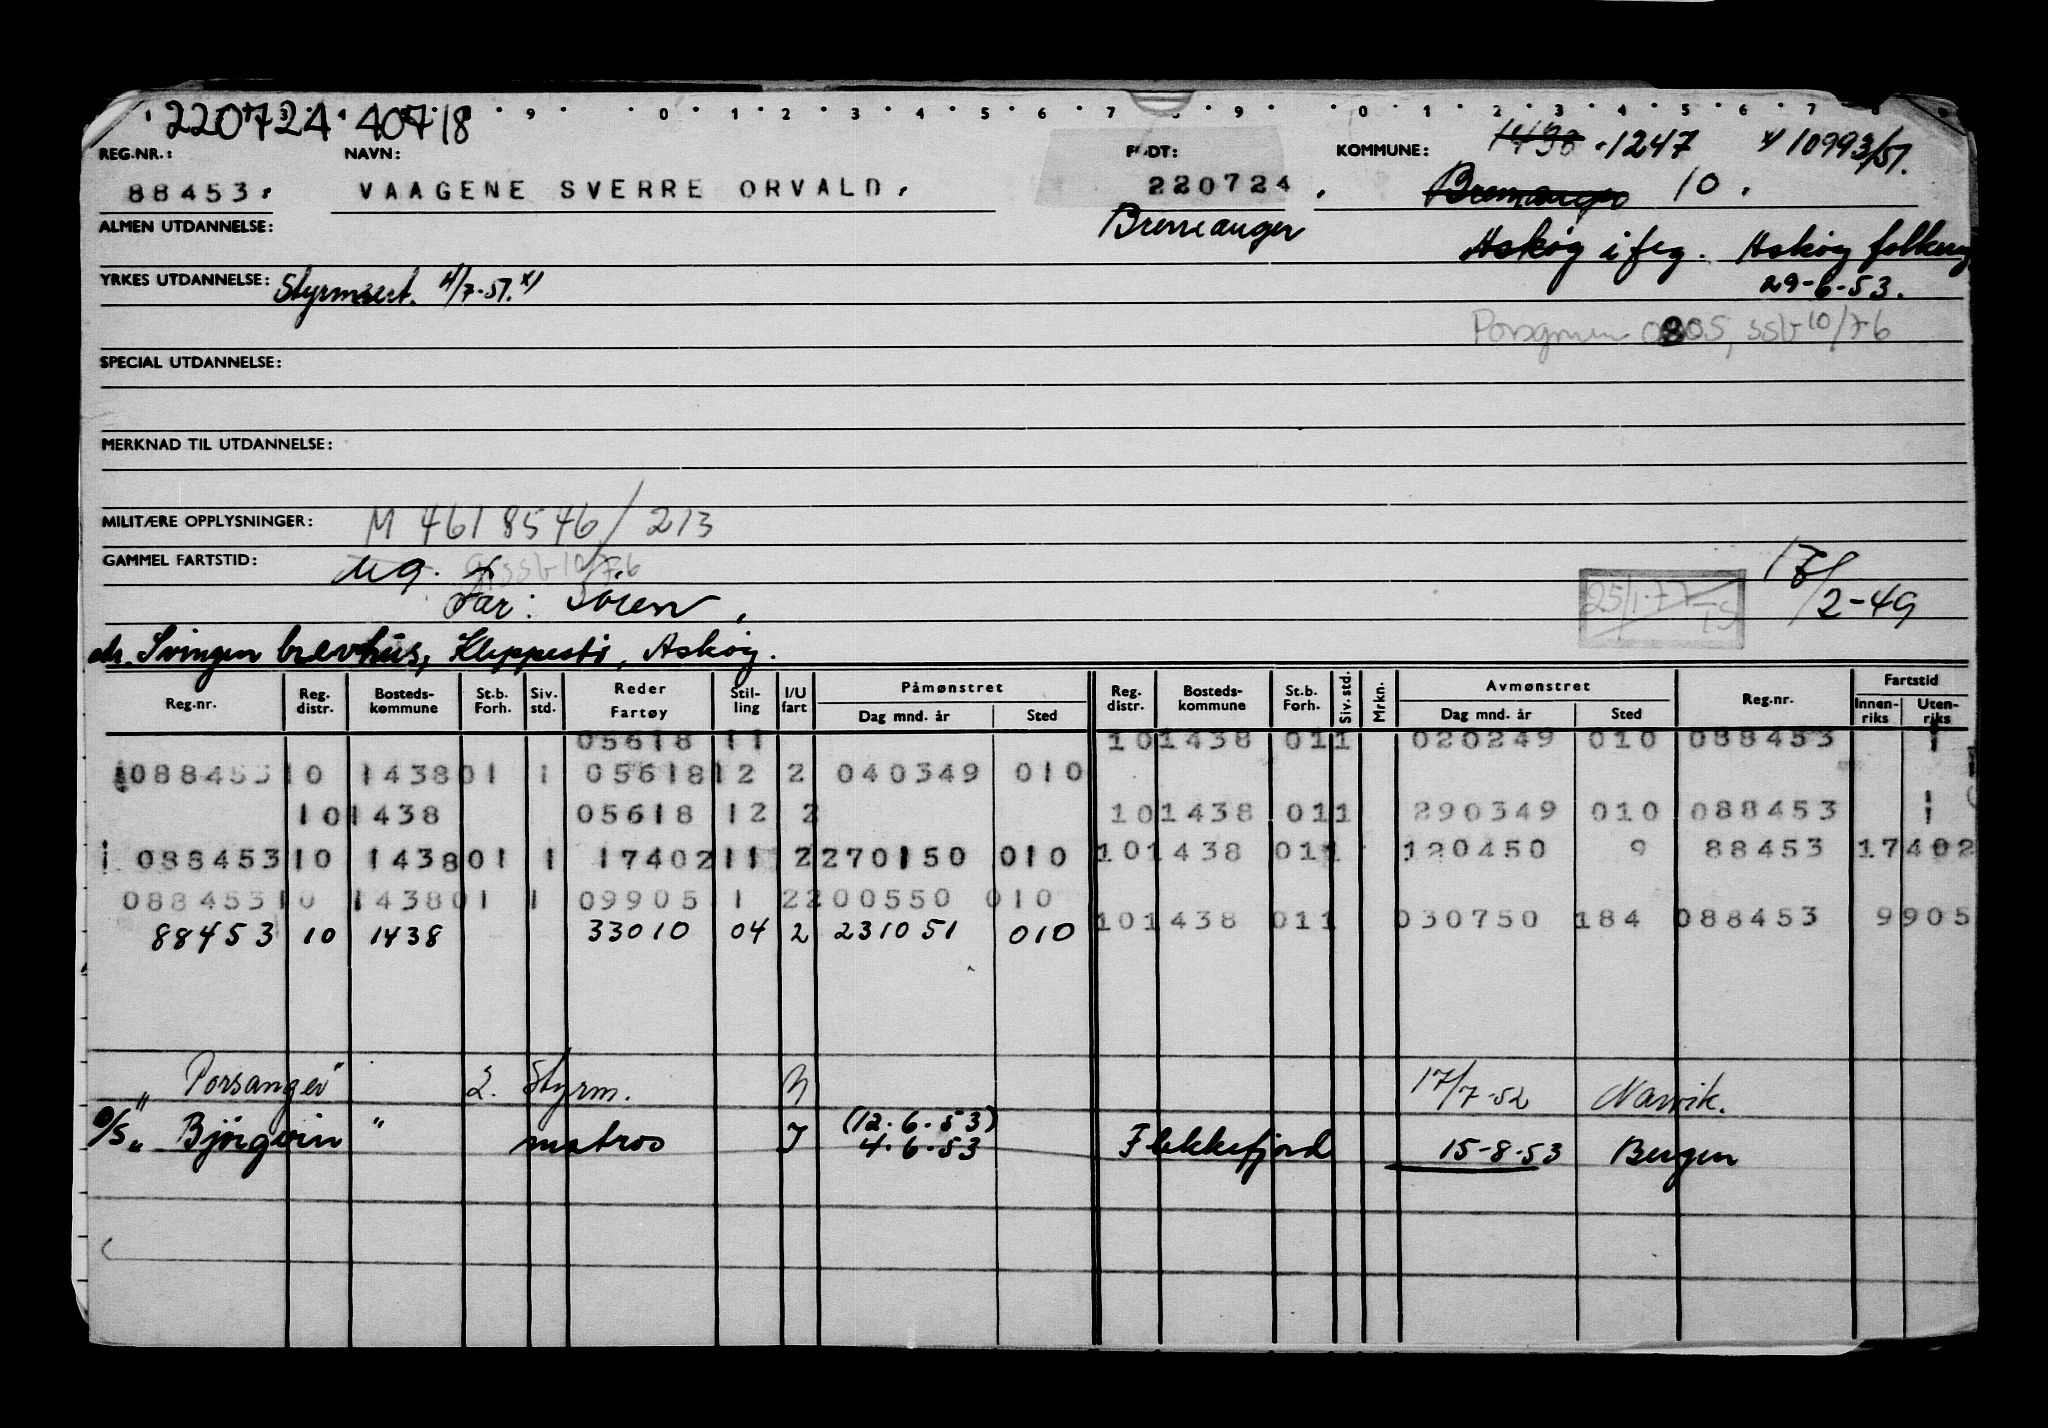 220724 40718
9 0 1 2 3 4 5 6 7 9 0 1 2 3 4 5 6 7 8
REG.NR.: NAVN: FØDT: KOMMUNE: 1438 . 1247 x) 10993/51.
88453. VAAGENE SVERRE ORVALD. 220724. Bremanger 10.
ALMEN UTDANNELSE: Bremanger Askøy i flg. Askøy folkereg
YRKES UTDANNELSE: Styrmsert. 4/7-51. x) 29-6-53.
Porsgrunn 0805, ssb 10/76
SPECIAL UTDANNELSE:
MERKNAD TIL UTDANNELSE:
MILITÆRE OPPLYSNINGER: M 4618546/213
GAMMEL FARTSTID: ug. ssb 10/76
Far: Sören, 25/1-77 TS 17/2-49
adr. Svingen brevhus, Kleppestø, Askøy.
Reg.nr. Reg. distr. Bosteds-kommune St.b. Forh. Siv. std. Reder Fartøy Stil-ling I/U fart Påmønstret Dag mnd. år Sted Reg. distr. Bosteds-kommune St.b. Forh. Siv. std. Mrkn. Avmønstret Dag mnd. år Sted Reg.nr. Fartstid Innen-riks Uten-riks
05618 11 10 1438 01 1 020249 010 088453 1
088453 10 1438 01 1 05618 12 2 040349 010
10 1438 05618 12 2 10 1438 01 1 290349 010 088453 1
088453 10 1438 01 1 17402 11 2 270150 010 10 1438 01 1 120450 9 88453 17402
088453 10 1438 01 1 09905 1 2 200550 010
10 1438 01 1 030750 184 088453 9905
88453 10 1438 33010 04 2 231051 010
"Porsanger" 2. Styrm. U 17/7-52 Narvik.
D/S "Bjørgvin" matros I (12.6.53) 4.6.53 Flekkefjord 15-8-53 Bergen